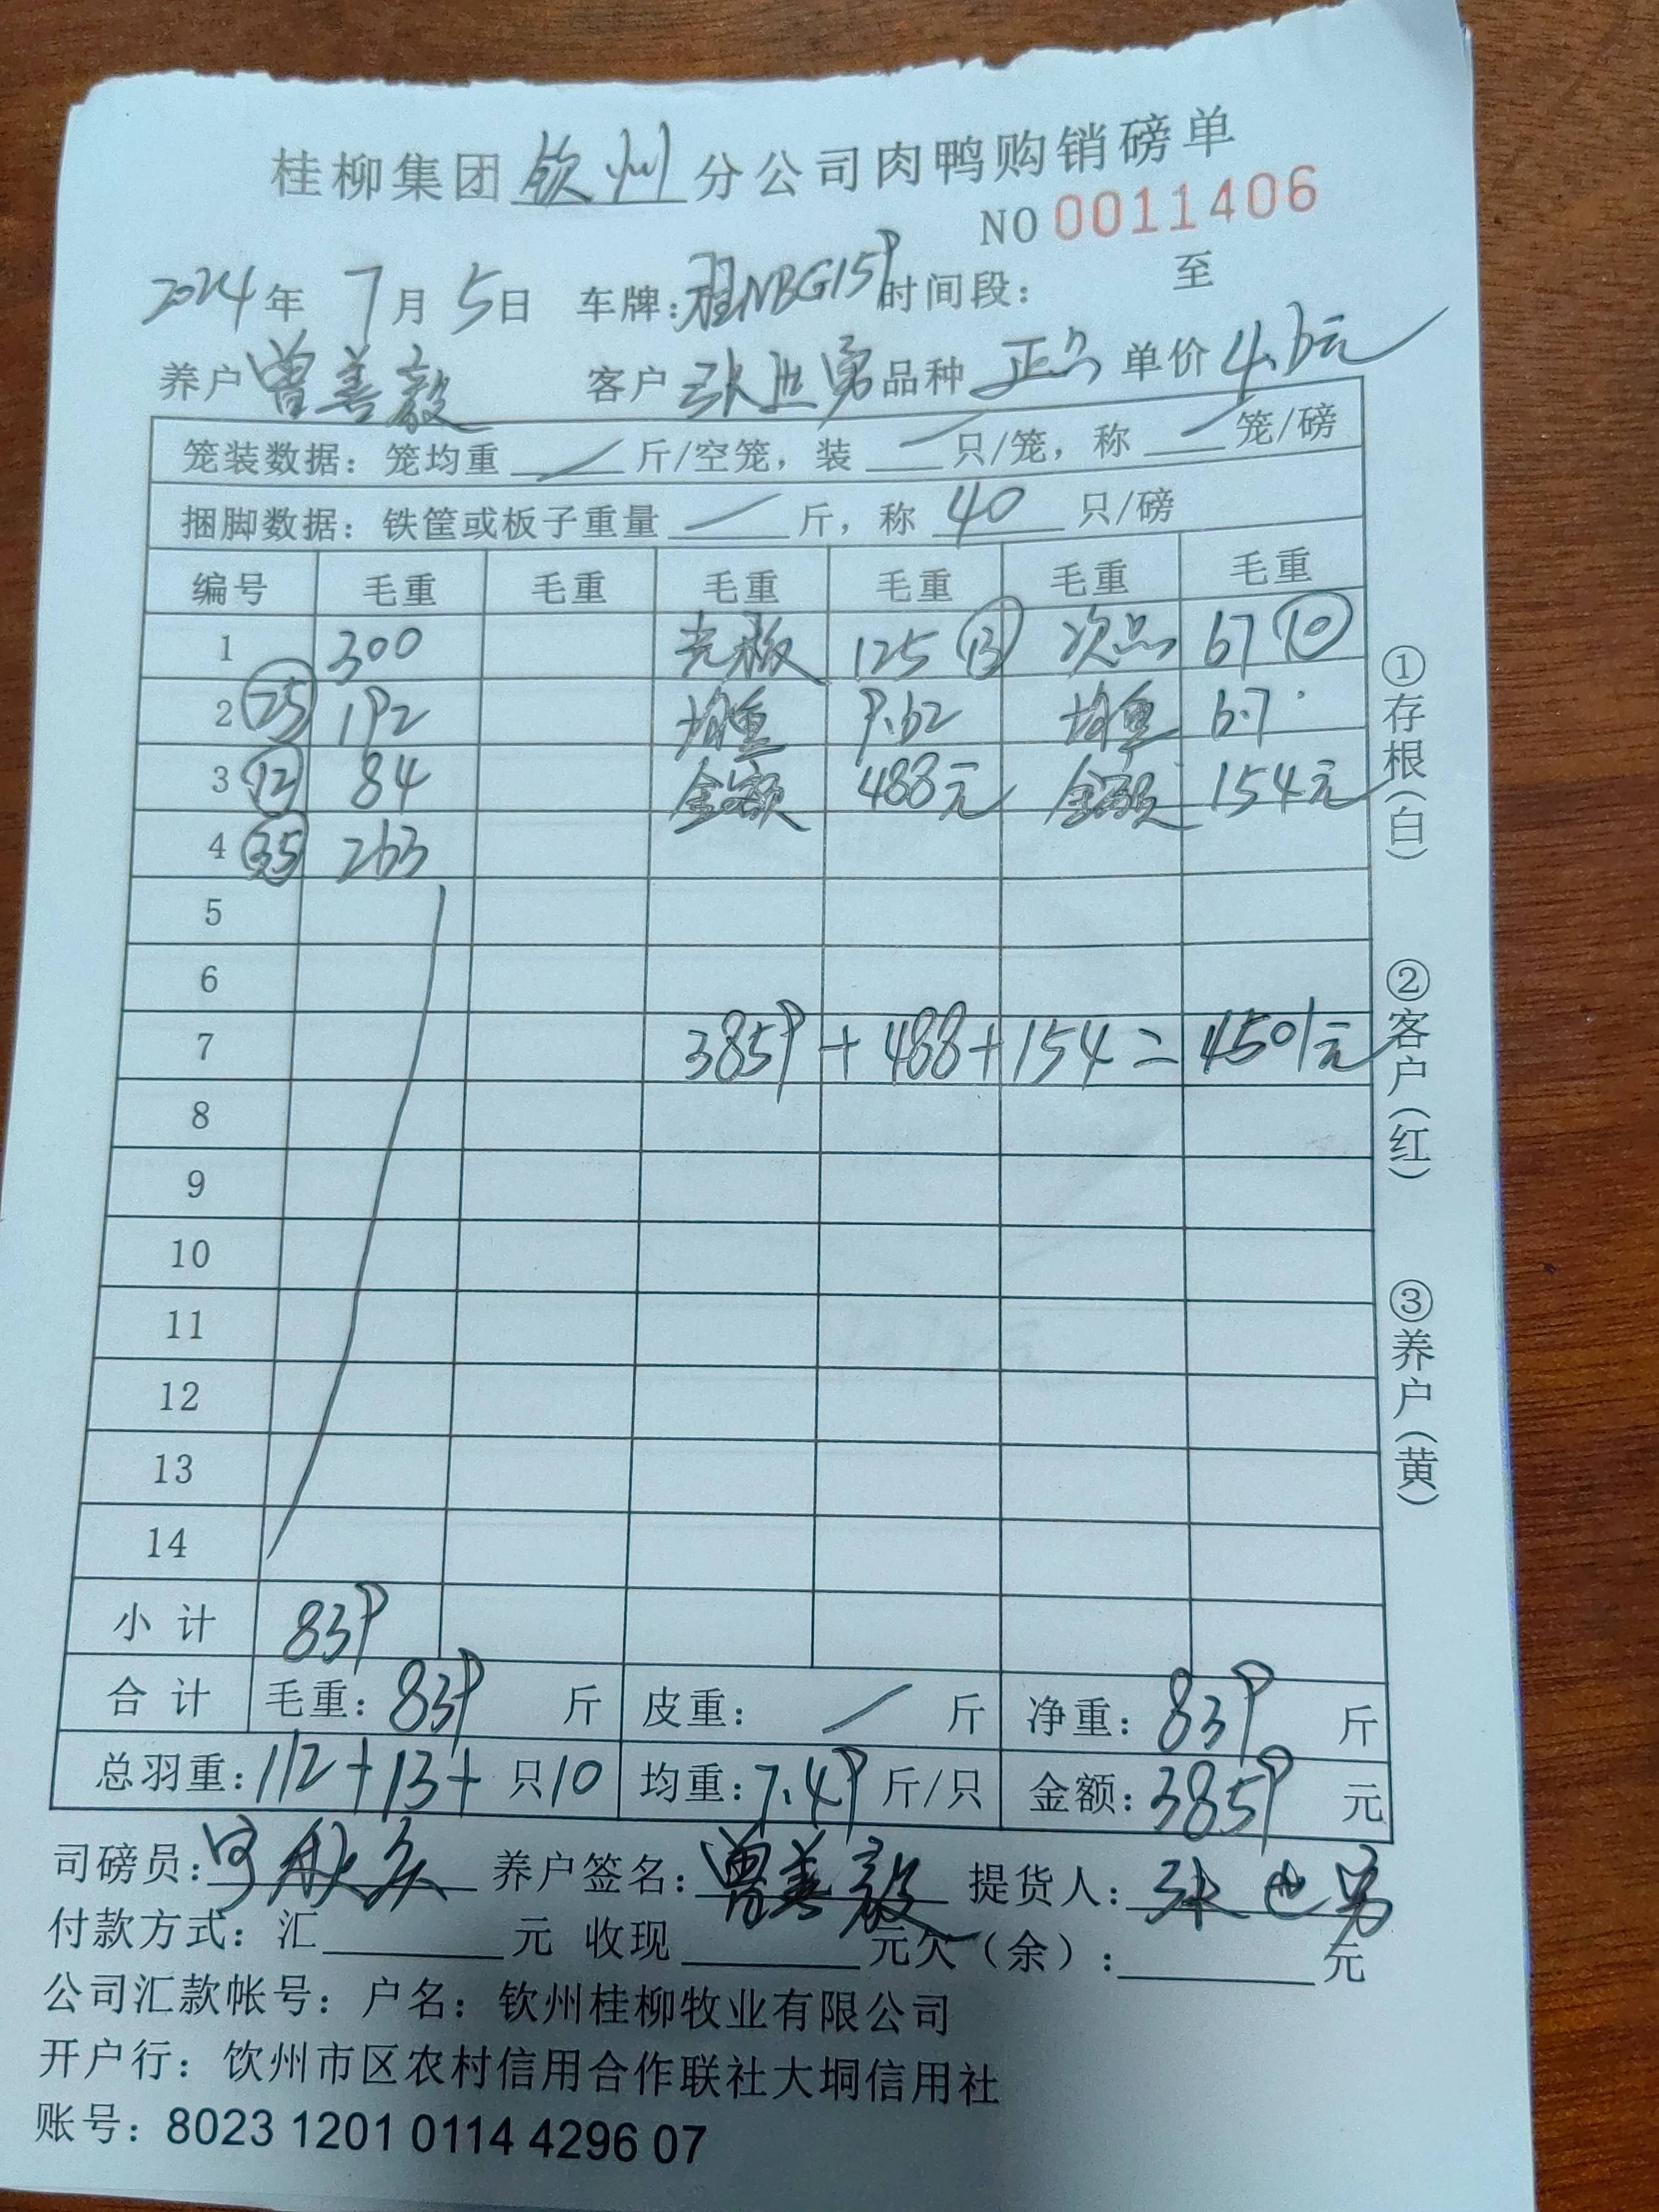 桂柳集团钦州分公司肉鸭购销磅单
NO 0011406
2024年 7月 5日 车牌:桂NBG159 时间段: 至
养户 曾善毅 客户 张世勇 品种 正品 单价 4.6元
笼装数据:笼均重 / 斤/空笼,装 / 只/笼,称 / 笼/磅
捆脚数据:铁筐或板子重量 / 斤,称 40 只/磅
编号 毛重 毛重 毛重 毛重 毛重 毛重
1 300 光板 125 ⑬ 次品 67 ⑩
2 ㉕ 192 均重 9.62 均重 6.7
3 ⑫ 84 金额 488元 金额 154元
4 ㉟ 263
5
6
7 3859+488+154=4501元
8
9
10
11
12
13
14
小计 839
合计 毛重:839 斤 皮重: / 斤 净重:839 斤
总羽重:112+13+ 只10 均重:7.49 斤/只 金额:3859 元
司磅员: 养户签名:曾善毅 提货人:张世勇
付款方式:汇 元 收现 元欠(余): 元
公司汇款帐号:户名:钦州桂柳牧业有限公司
开户行:钦州市区农村信用合作联社大垌信用社
账号:8023 1201 0114 4296 07
①存根(白)
②客户(红)
③养户(黄)